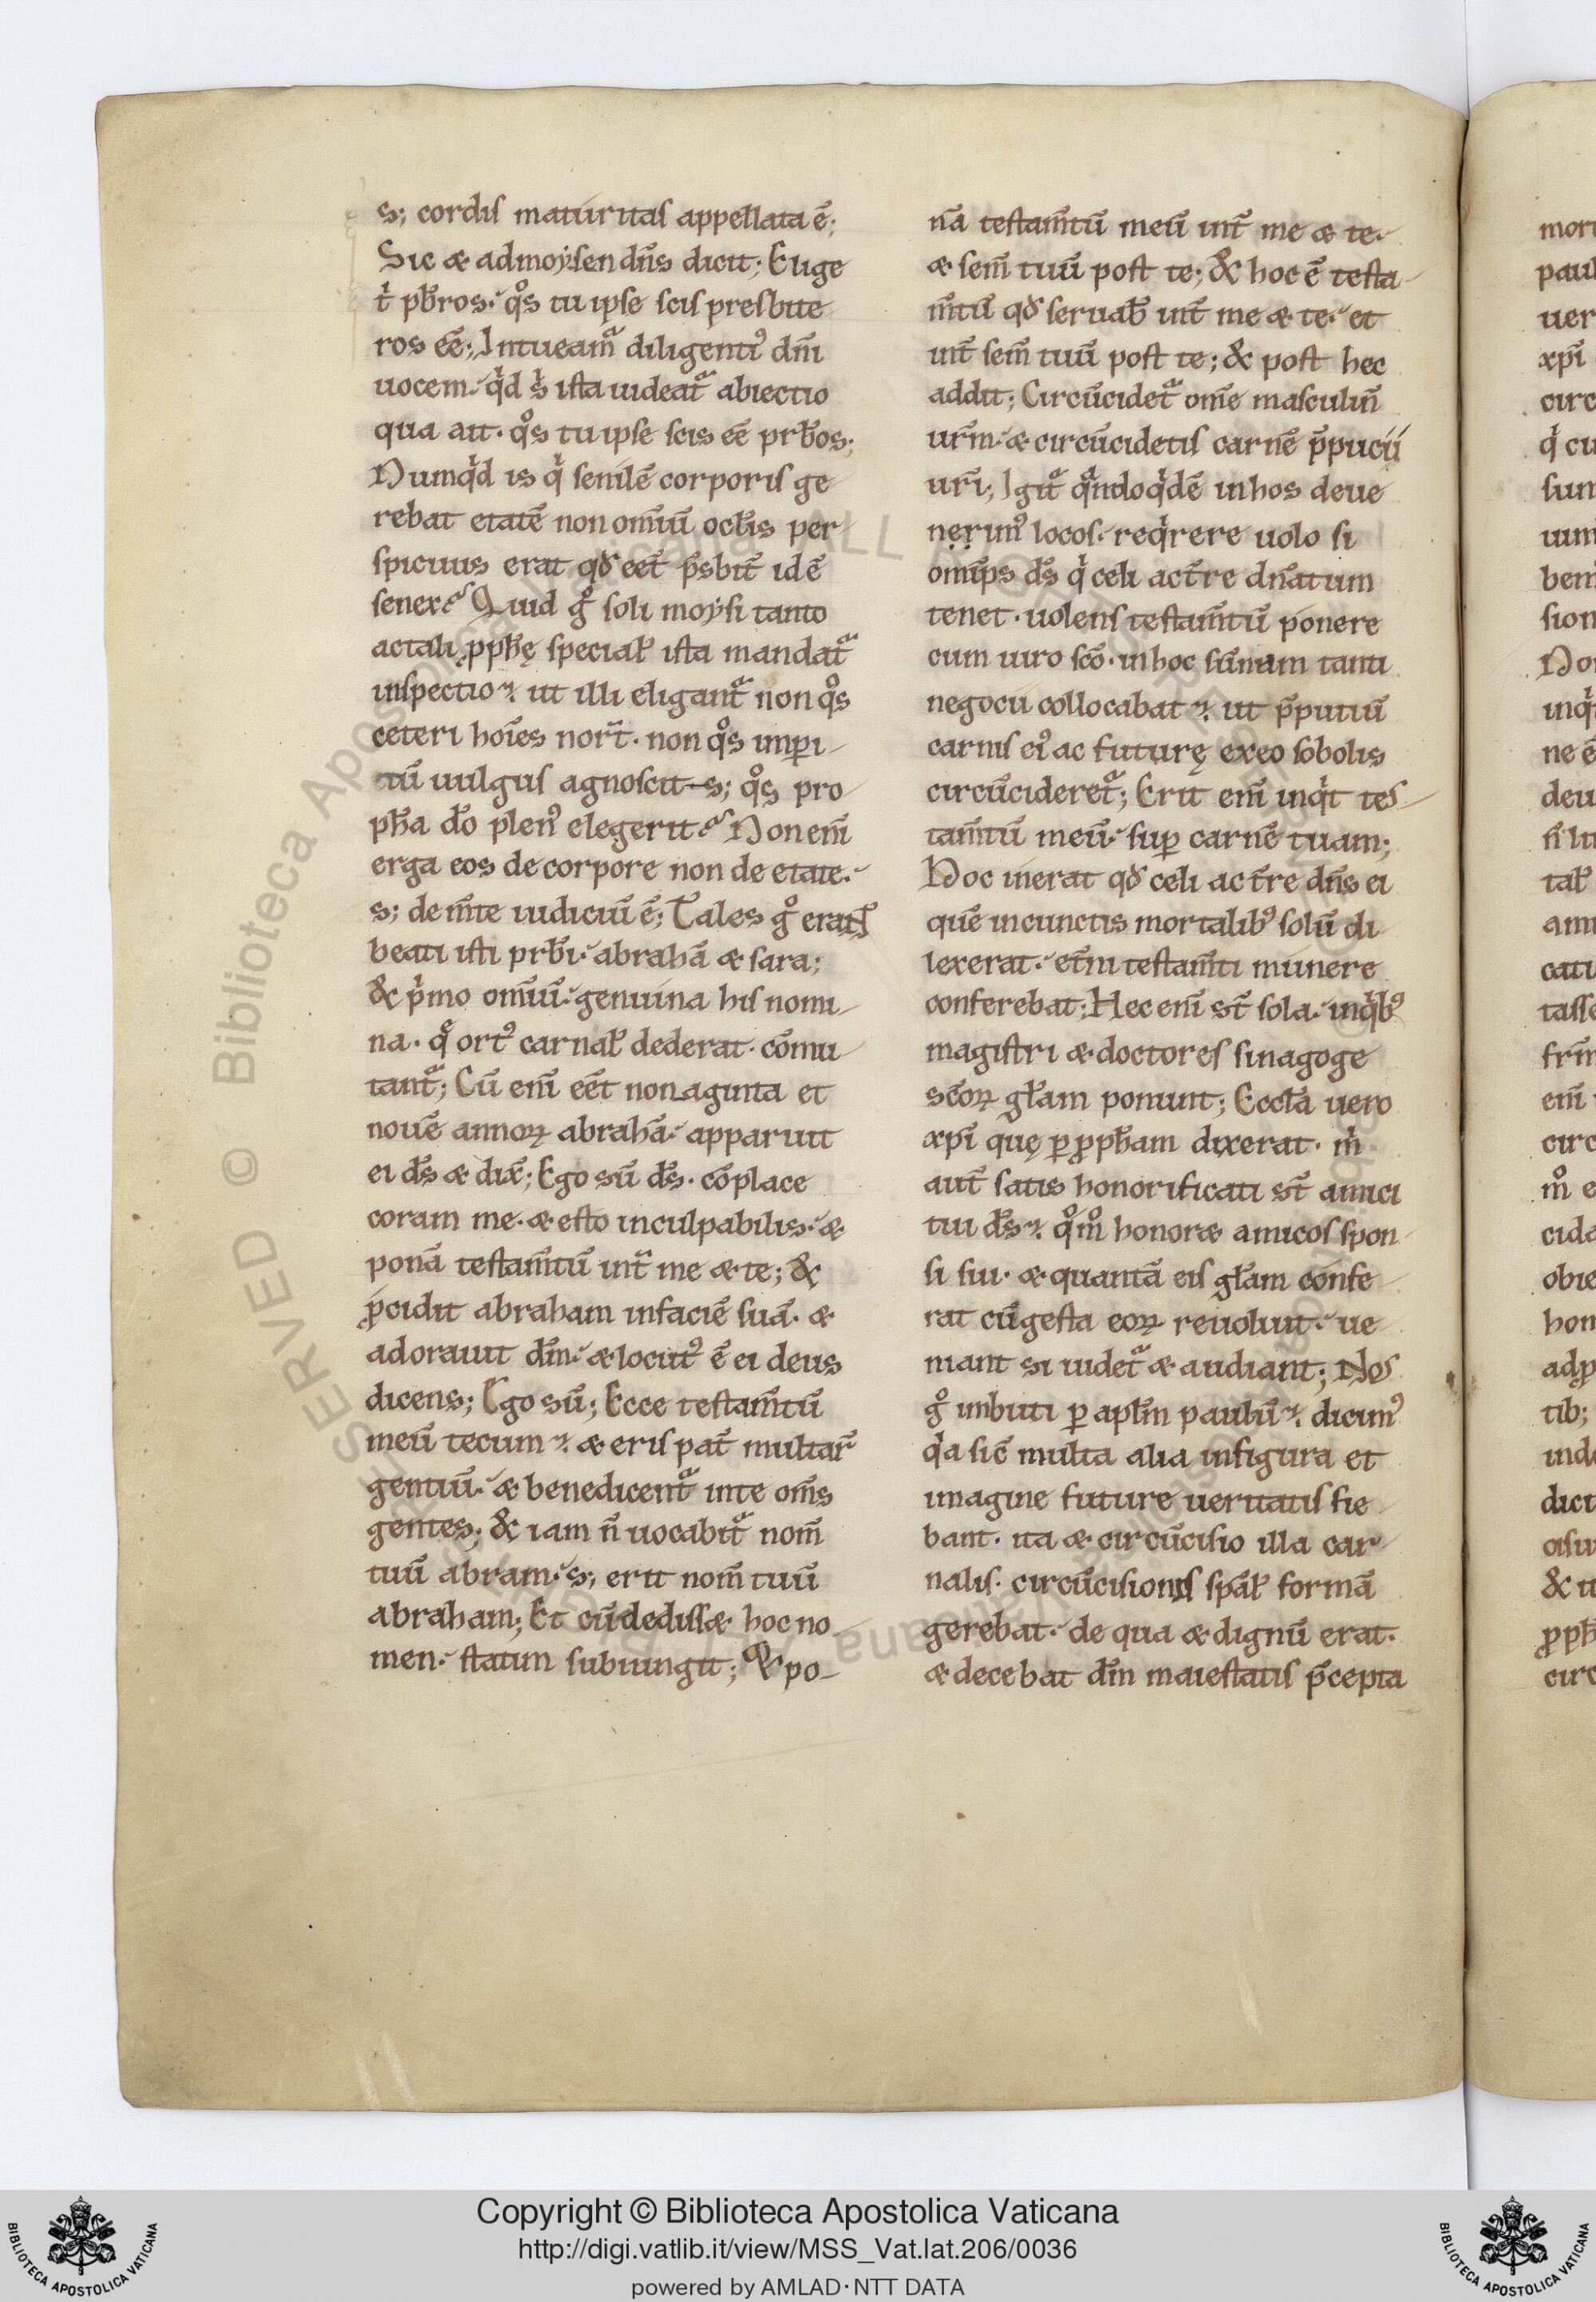 s; cordis maturitas appellata ē;
Sic & ad moysen dn̄s dicit; Elige
t͛ pb̄ros. qͦs tu ipse scis presbite
ros ēē; Intueam̄ diligenti᾽ dn̄i
uocem. q͛d s͛ ista uideat᷑ abiectio
qua ait. qͦs tu ipse scis ēē prb̄os;
Numq͛d is q͛ senilē corporis ge
rebat etatē non om̄iū oc̄lis per
spicuus erat qđ eēt p̄sbit̄ idē
senex? Quid gͦ soli moysi tanto
ac tali ꝓph̄ę special̄ ista mandat᷑
inspectio. ut illi eligant᷑ non qͦs
ceteri hoīes nor̄t. non qͦs imꝑi
tū uulgus agnoscit s; qͦs pro
ph̄a d̄o plen᾽ elegerit? Non eni̅
erga eos de corpore non de etate.
s; de m̄te iudiciū ē; Tales gͦ erant
beati isti prb̄i. abrahā & sara;
& p͛mo om̄iū. genuina his nomi
na. q̄ ort᾽ carnal̄ dederat. cōmu
tant᷑; Cū eni̅ eēt nonaginta et
nouē annoꝝ abrahā. apparuit
ei d̄s & dix̄; Ego sū d̄s. cōplace
coram me. & esto inculpabilis. &
ponā testam̄tū int̄ me & te; &
ꝓcidit abraham in faciē suā. &
adorauit dn̄m. & locut᾽ ē ei deus
dicens; Ego sū; Ecce testam̄tū
meū tecum. & eris pat̄ multar̄
gentiū. & benedicent᷑ in te om̄s
gentes; & iam n̄ uocabit᷑ nom̄
tuū abram. s; erit nom̄ tuū
abraham; Et cū dediss& hoc no
men. statim subiungit; & po
nā testam̄tū meū int̄ me & te.
& sem̄ tuū post te; & hoc ē testa
m̄tū qđ seruab̄ int̄ me & te. et
int̄ sem̄ tuū post te; & post hec
addit; Circūcidet᷑ om̄e masculin̄
ur̄m. & circūcidetis carnē p̄pucii
ur̄i; Igit᷑ q̄ndoq͛dē in hos deue
nerim᾽ locos. req͛rere uolo si
omīps d̄s q͛ celi ac t̄re dn̄atum
tenet. uolens testam̄tū ponere
cum uiro sc̄o. in hoc sūmam tanti
negocii collocabat. ut p̄putiū
carnis ei᾽ ac futurę ex eo sobolis
circūcideret᷑; Erit eni̅ inq͛t tes
tam̄tū meū. suꝑ carnē tuam;
Hoc inerat qđ celi ac t̄re dn̄s ei
quē in cunctis mortalib᾽ solū di
lexerat. et̄ni testam̄ti munere
conferebat; Hec eni̅ st̄ sola. in q͛b᾽
magistri & doctores sinagoge
sc̄oꝝ gl̄am ponunt; Eccl̄a uero
xp̄i quę ꝑ ꝓph̄am dixerat. m͛
aut̄ satis honorificati st̄ amici
tui d̄s. qͦmͦ honor& amicos spon
si sui. & quantā eis gl̄am confe
rat cū gesta eoꝝ reuoluit. ue
niant si uidet᷑ & audiant; Nos
gͦ inbuti ꝑ apl̄m paulū. dicim᾽
q͛a sic̄ multa alia in figura et
imagine future ueritatis fie
bant. ita & circūcisio illa car
nalis. circūcisionis sp̄al̄ formā
gerebat. de qua & dignū erat.
& decebat dm̄ maiestatis p̄cepta
Copyright © Biblioteca Apostolica Vaticana
http://digi.vatlib.it/view/MSS_Vat.lat.206/0036
powered by AMLAD·NTT DATA
BIBLIOTECA APOSTOLICA VATICANA
BIBLIOTECA APOSTOLICA VATICANA